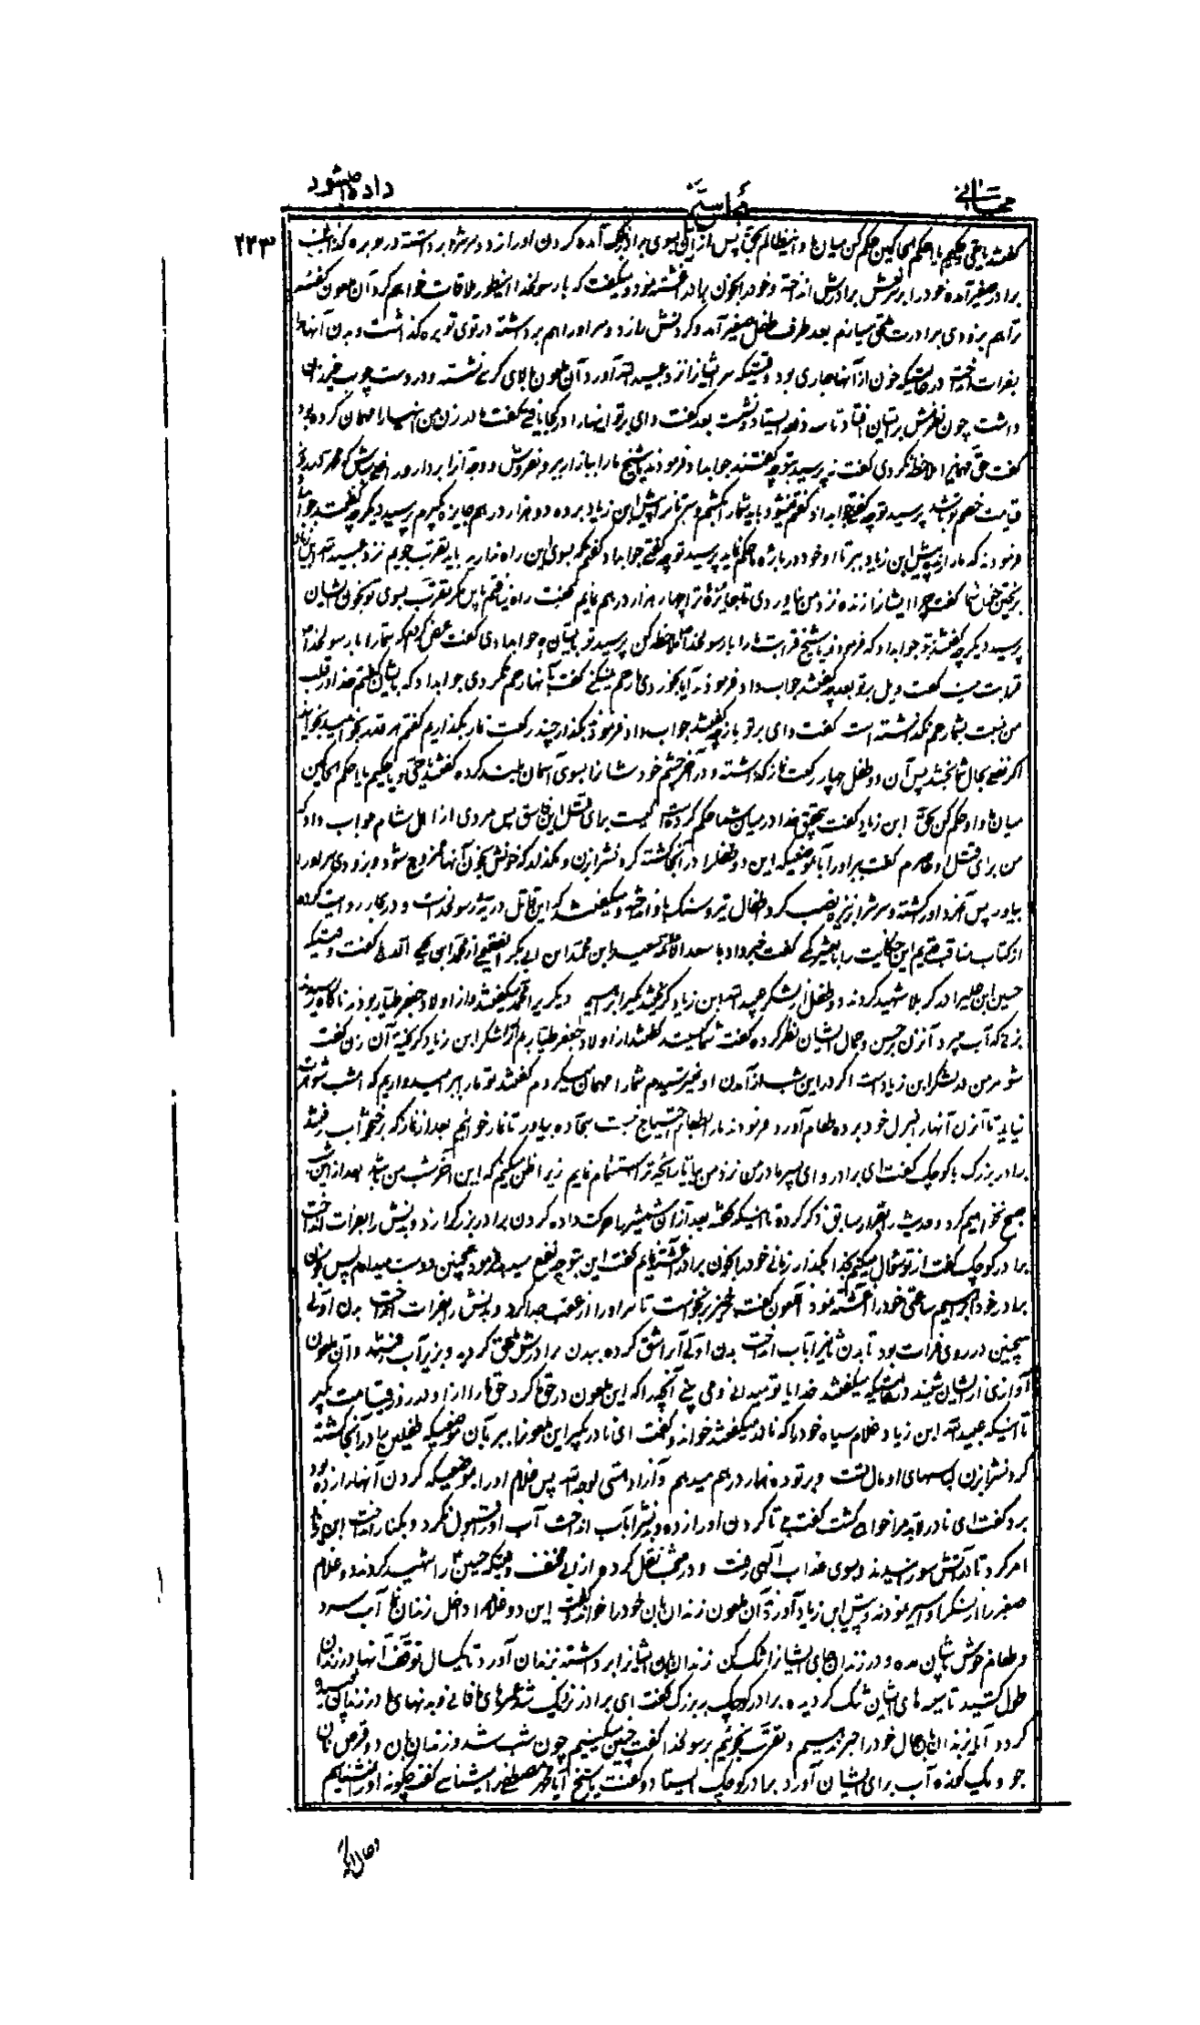 مجانی مجلس داده میشود
۲۲۳
گفتند یا حی و یا حکیم یا احکم الحاکمین حکم کن میان ما و این ظالم بحق پس از آن بسوی برادر بزرگ آمده گردن او را زد و سرش را برداشته در توبره گذاشت
برادر صغیر آمده خود را بر نعش برادرش انداخته و خود را بخون برادر آغشته نمود و میگفت که با رسول خدا اینطور ملاقات خواهم کرد آن ملعون گفت
ترا هم بزودی برادرت ملحق میسازم بعد طرف طفل صغیر آمد و گردنش را زد و سر او را هم برداشته در توی توبره گذاشت و بدن آنها را
بفرات انداخت در حالتیکه خون از آنها جاری بود وقتیکه سر ایشان را نزد عبید الله آورد آن ملعون بالای کرسی نشسته و در دست چوب خیزران
داشت چون نظرش بر ایشان افتاد سه دفعه ایستاد و نشست بعد گفت وای بر تو اینها را در کجا یافتی گفت مادر زن من اینها را مهمان کرده بود
گفت حق مهمان را ملاحظه نکردی گفت نه پرسید بتو چه گفتند جواب داد فرمودند یا شیخ ما را ببازار ببر و بفروش و وجه آنرا بردار
قیامت خصم تو باشد پرسید تو چه گفتی جواب داد گفتم نمیشود باید شما را بکشم و سرتان را پیش ابن زیاد برده دو هزار درهم جایزه بگیرم پرسید دیگر چه گفتند جواب
فرمودند که ما را به پیش ابن زیاد ببر تا او خود درباره ما حکم نماید پرسید تو چه گفتی جواب داد گفتم که بسوی این راه ندارید باید تقرب جویم نزد عبید الله بن زیاد
بریختن خون شما گفت چرا ایشان را زنده نزد من نیاوردی تا جایزه ترا چهار هزار درهم نمایم گفت راه نیافتم باین مگر تقرب بسوی تو بخون ایشان
پرسید دیگر چه گفتند بتو جواب داد که فرمودند یا شیخ قرابت ما را با رسول خدا ملاحظه کن پرسید تو بایشان چه جواب دادی گفت عرض کردم که شما را با رسول خدا
قرابت نیست گفت ویل بر تو بعد چه گفتند جواب داد فرمودند آیا بخوردی ما رحم نمیکنی گفت بآنها رحم نکردی جواب داد که بایشان گفتم خدا در قلب
من نسبت بشما رحم نگذاشته است گفت وای بر تو باز چه گفتند جواب داد فرمودند بگذار چند رکعت نماز بگذاریم گفتم هر قدر بخواهید بخوانید
اگر نفعی بحال شما بخشد پس آن دو طفل چهار رکعت نماز گذاشته و در آخر چشم خودشان را بسوی آسمان بلند کرده گفتند یا حی و یا حکیم یا احکم الحاکمین
میان ما و او حکم کن بحق ابن زیاد گفت بتحقیق خدا در میان شما حکم کرده است کیست برای قتل این فاسق پس مردی از اهل شام جواب داد که
من برای قتل او حاضرم گفت ببر او را بآن موضعیکه این دو طفل را در آنجا کشته گردنش را بزن و مگذار که خونش بخون آنها ممزوج شود و بزودی سر او را
بیاور پس آنمرد او را کشته و سرش را بر نیزه نصب کرد اطفال تیر و سنگ باو انداخته و میگفتند که این قاتل ذریه رسول خداست و در بحار روایت کرده
از کتاب مناقب قدیم این حکایت را بتغییر کمی گفت خبر داد ما را سعد الائمه سعید ابن محمد ابن ابی بکر الفقیمی از محمد ابن گفت وقتیکه
حسین ابن علی را در کربلا شهید کردند دو طفل از لشکر عبید الله ابن زیاد گریختند یکی را ابراهیم دیگری را محمد میگفتند و از اولاد جعفر طیار بودند ناگاه رسیدند
بزنی که آب میبرد آنزن بحسن و جمال ایشان نظر کرده گفت شما کیستید گفتند از اولاد جعفر طیاریم از لشکر ابن زیاد گریخته آن زن گفت
شوهر من در لشکر ابن زیاد است اگر در این شب از آمدن او نمیترسیدم شما را مهمان میکردم گفتند تو ما را ببر امیدواریم که امشب شوهرت
نیاید تا آنزن آنها را بمنزل خود برده طعام آورد فرمودند ما را بطعام احتیاج نیست سجاده بیاور تا نماز خوانیم بعد از نماز که برختخواب رفتند
برادر بزرگ بکوچک گفت ای برادر و ای پسر مادر من نزد من بیا تا رایحه ترا استشمام نمایم زیرا ظن میکنم که این آخر شب من باشد بعد از این شب
صبح نخواهیم کرد و حدیث را بقرار سابق ذکر کرده تا اینکه گفته بعد از آن شمشیر را حرکت داده گردن برادر بزرگ را زد و بدنش را بفرات انداخت
برادر کوچک گفت از تو سؤال میکنم بخدا بگذار زمانی خود را بخون برادر آغشته نمایم گفت این بتو چه نفع میدهد فرمود همچنین دوست میدارم پس بخون
برادر خود ابراهیم ساعتی خود را آغشته نمود آنملعون گفت برخیز برنخواست تا سر او را از عقب جدا کرد و بدنش را بفرات انداخت بدن اولی
همچنین در روی فرات بود تا بدن ثانی را بآب انداخت بدن اولی آب را شق کرده ببدن برادرش ملحق گردید و بزیر آب رفتند و آن ملعون
آوازی از ایشان شنید در حالتیکه میگفتند خدایا تو میدانی و می بینی آنچه را که این ملعون در حق ما کرد حق ما را از او در روز قیامت بگیر
تا اینکه عبید الله ابن زیاد غلام سیاه خود را که نادر میگفتند خوانده گفت ای نادر بگیر این ملعون را ببر بآن موضعیکه طفلین را در آنجا کشته
گردنش را بزن لباسهای او مال تست و بر تو ده هزار درهم میدهم و آزاد هستی لوجه الله پس غلام او را بموضعیکه گردن آنها را زده بود
برد گفت ای نادر البته مرا خواهی کشت گفت بلی تا گردن او را زده و بدنش را بآب انداخت آب او را قبول نکرد و بکنار انداخت ابن زیاد
امر کرد تا در آتش سوزانیدند و بسوی عذاب الهی رفت و در منتخب نقل کرده از ابی مخنف وقتیکه حسین را شهید کردند دو غلام
صغیر را از لشکر او اسیر نمودند و پیش ابن زیاد آوردند آن ملعون زندانبان خود را خوانده گفت این دو غلام را داخل زندان نما آب سرد
و طعام خوش بایشان مده و در زندان جای ایشان را تنگ کن زندانبان ایشان را برداشته بزندان آورد تا یکسال توقف آنها در زندان
طول کشید تا سینه های ایشان تنگ گردیده برادر کوچک ببزرگ گفت ای برادر نزدیک شد عمرهای ما فانی و بدنهای ما در زندان پوسیده
گردد آیا بزندانبان حال خود را خبر ندهیم و تقرب نجوئیم برسول خدا گفت چنین میکنیم چون شب شد و زندانبان دو قرص نان
جو و یک کوزه آب برای ایشان آورد برادر کوچک ایستاد و گفت یا شیخ آیا محمد مصطفی را میشناسی گفت چگونه او را نشناسم